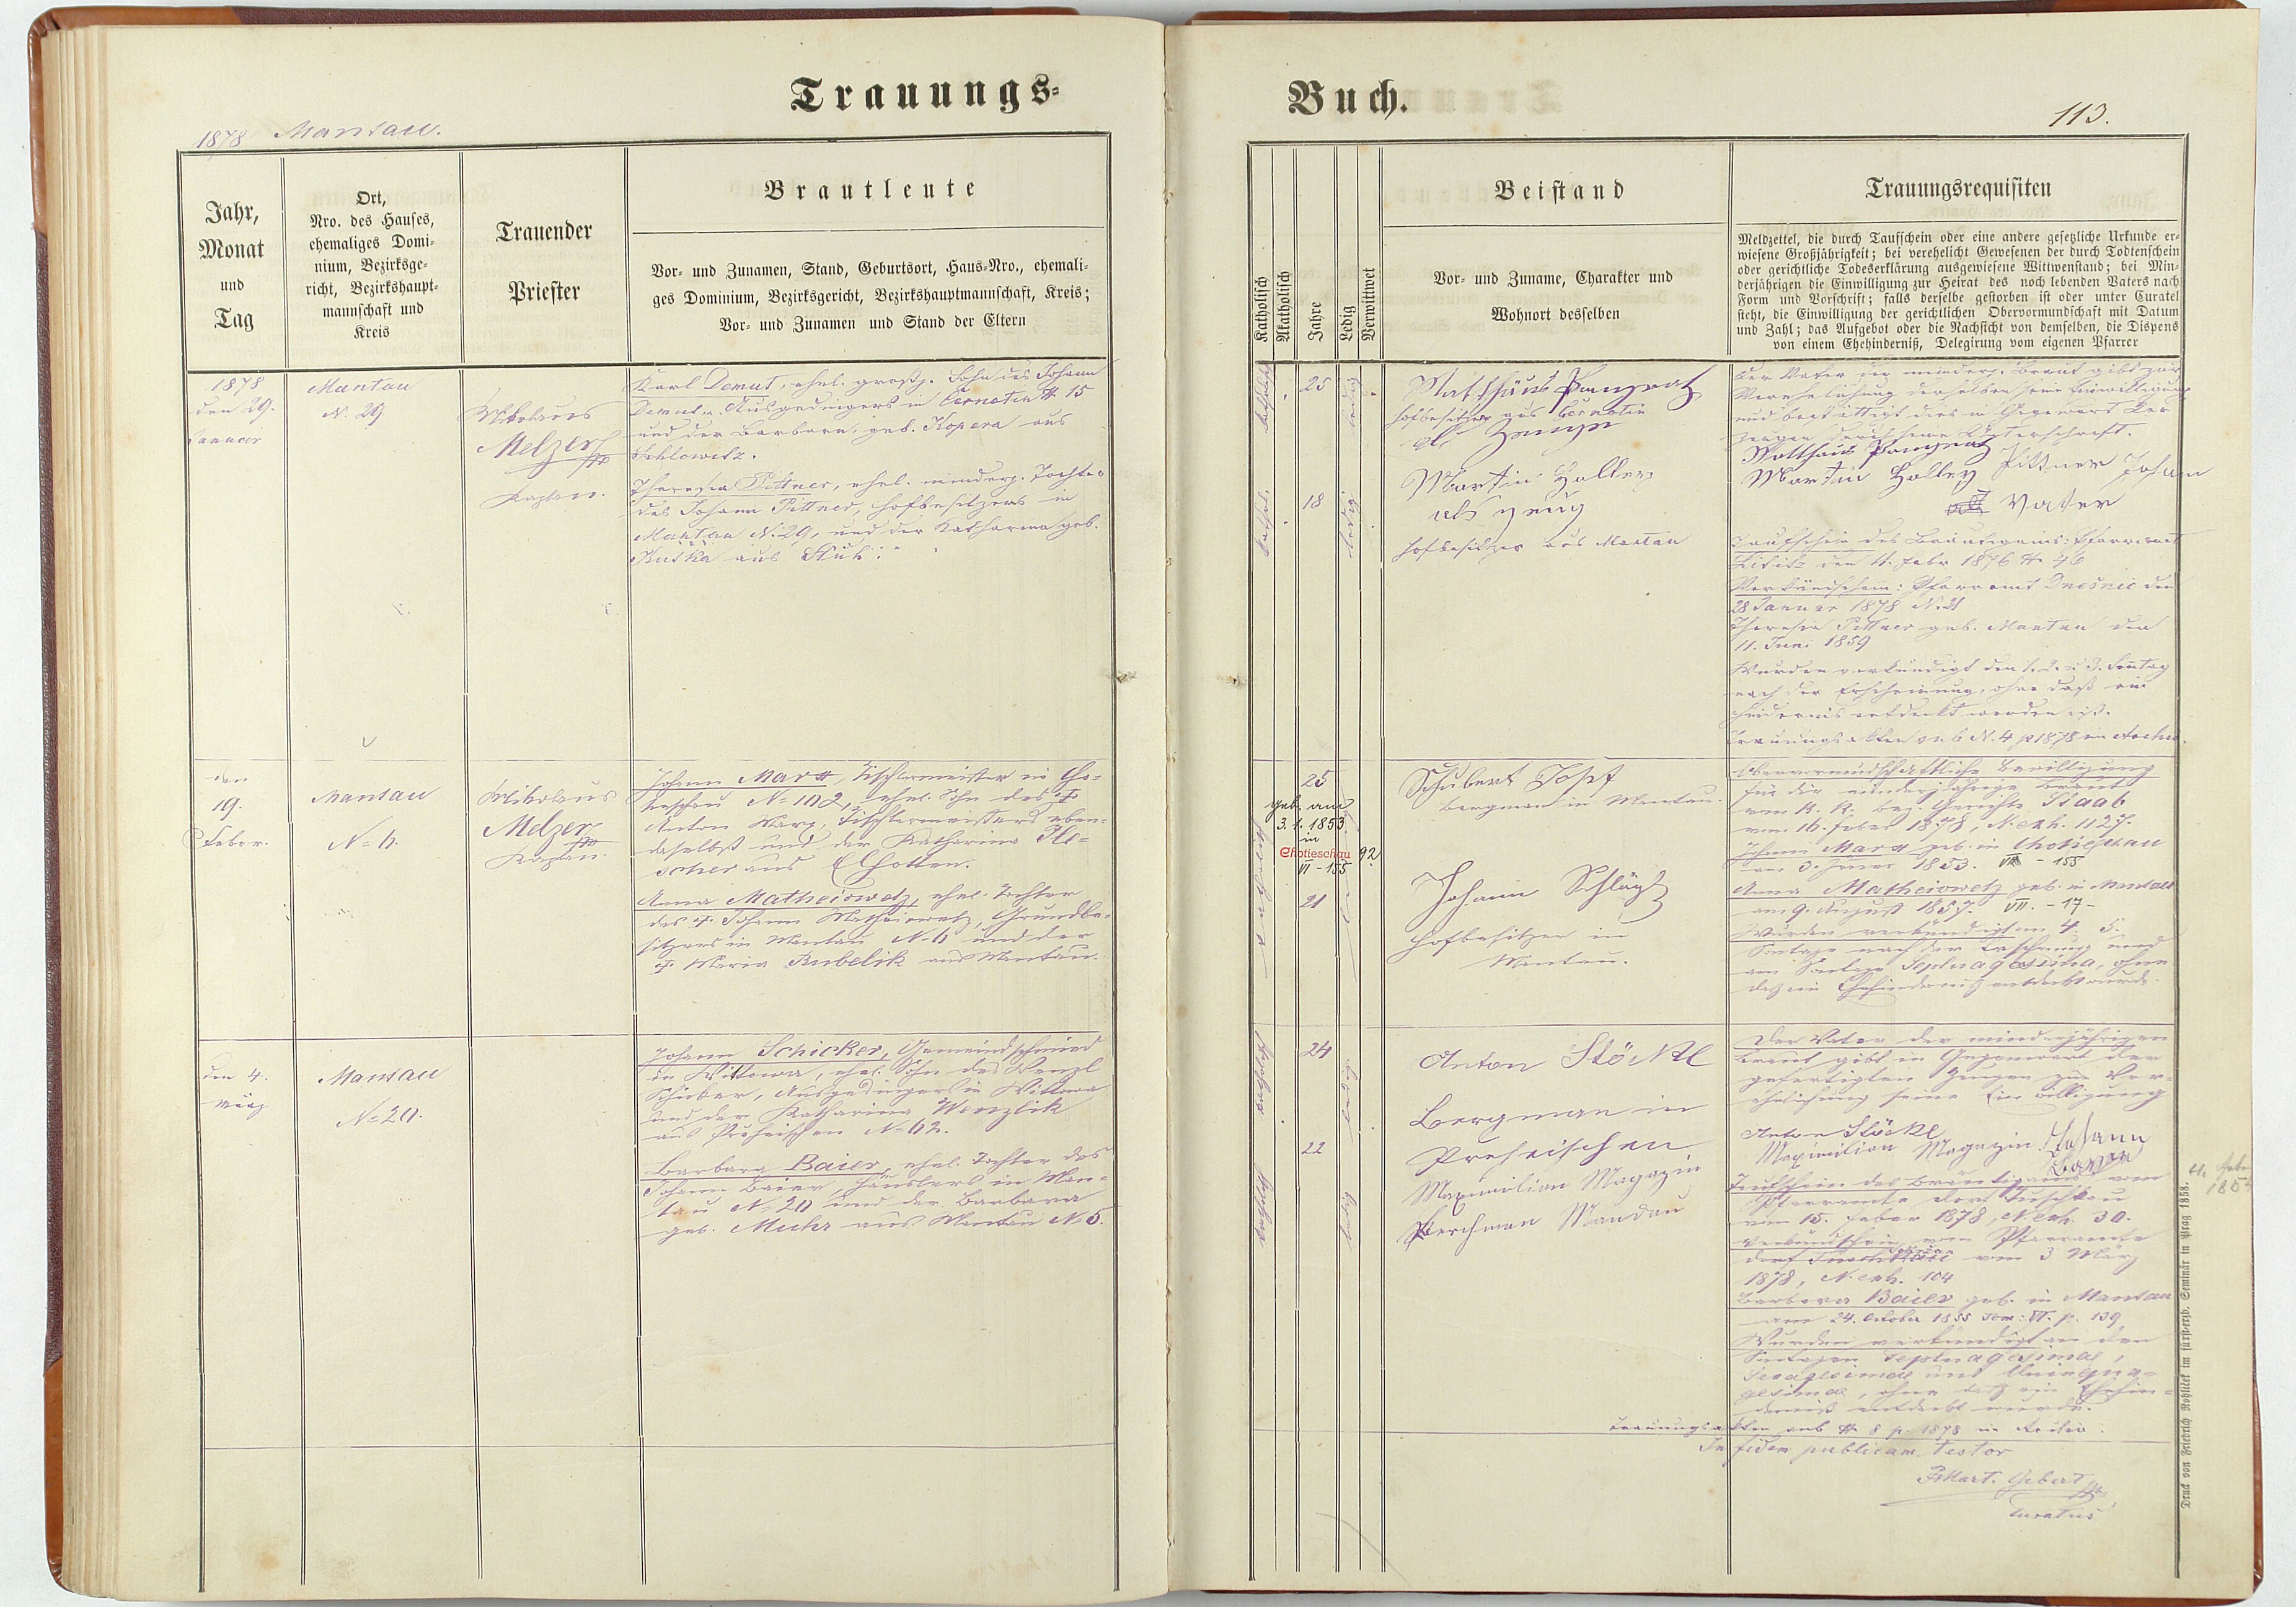 Trauungs-
1878 Mantau.
Jahr,
Monat
und
Tag
Ort,
Nro. des Hauses,
ehemaliges Domi-
nium, Bezirksge-
richt, Bezirkshaupt-
mannschaft und
Kreis
Trauender
Priester
Brautleute
Vor- und Zunamen, Stand, Geburtsort, Haus-Nro., ehemali-
ges Dominium, Bezirksgericht, Bezirkshauptmannschaft, Kreis;
Vor- und Zunamen und Stand der Eltern
1878
den 29.
Januar
Mantau
N. 29
Nikolaus
Melzer
Kaplan.
Karl Demut, ehel. großj. Sohn des Johann
Demut, Ausgedingers in Černotin # 15
und der Barbara, geb. Kopera aus
Theresia Pittner, ehel. minderj. Tochter
des Johann Pittner, Hofbesitzers in
Mantau N. 29, und der Katharina geb.
aus
den
19.
Feber.
Mantau
N= 6.
Nikolaus
Melzer
Kaplan.
Johann Marx, Tischlermeister in Cho-
tieschau N= 102, ehel. Sohn des †
Anton Marx, Tischlermeisters eben-
daselbst und der Katharina Ple-
scher aus Elhotten.
Anna Matheiowetz, ehel. Tochter
des † Johann Matheiowetz, Grundbe-
sitzers in Mantau N= 6 und der
† Maria Kubelik aus Mantau.
den 4.
März
Mantau
N= 20.
Johann Schicker, Gemeindschmied
in Wittowa, ehel. Sohn des Wenzl
Schicker, Ausgedingers in Wittowa
und der Katharina Wenzlik
aus Preheischen N= 62.
Barbara Baier, ehel. Tochter des
Johann Baier, Häuslers in Man-
tau N= 20 und der Barbara
geb. Muhr aus Mantau N 5.
Buch.
113.
Katholisch
Akatholisch
Jahre
Ledig
Verwittwet
Beistand
Vor- und Zuname, Charakter und
Wohnort desselben
Trauungsrequisiten
Meldzettel, die durch Taufschein oder eine andere gesetzliche Urkunde er-
wiesene Großjährigkeit; bei verehelicht Gewesenen der durch Todtenschein
oder gerichtliche Todeserklärung ausgewiesene Wittwenstand; bei Min-
derjährigen die Einwilligung zur Heirat des noch lebenden Vaters nach
Form und Vorschrift; falls derselbe gestorben ist oder unter Curatel
steht, die Einwilligung der gerichtlichen Obervormundschaft mit Datum
und Zahl; das Aufgebot oder die Nachsicht von demselben, die Dispens
von einem Ehehinderniß, Delegirung vom eigenen Pfarrer
katholisch
25
ledig
kathol.
18
ledig
Matthäus Pangratz
Hofbesitzer aus Černotin
als Zeuge
Martin Halley
als Zeug
Hofbesitzer aus Mantau
Der Vater der minderj. Braut gibt zur
Verehelichung derselben seine Einwilligung
und bestättigt dies in Gegenwart der
Zeugen durch seine Unterschrift.
Matthäus Pangratz
Martin Halley Pittner Johann
Vater
Taufschein des Bräutigams: Pfarramt
Lititz den 11. Febr 1876 # 46
Verkündschein: Pfarramt Dnešnic den
28 Januar 1878 N. 21
Theresia Pittner geb. Mantau den
11. Juni 1859
Wurden verkündigt den 1. 2. u 3. Sontag
nach der Erscheinung, ohne daß ein
Hindernis entdeckt worden ist.
Trauungsakten sub N. 4 p 1878 im Archiv.
25
geb. am
3. 1. 1853
in
Chotieschau
VI - 155
92
21
Schubert Josef
Bergman in Mantau.
Johann Schlögl
Hofbesitzer in
Mantau.
Obervormundschaftliche Bewilligung
für die minderjährige Braut
vom K. K. bez. Gerichte Staab
vom 16. Feber 1878, N. exh. 1127.
Johann Marx geb. in Chotieschau
am 3. Jäner 1853. VI - 155
Anna Matheiowetz geb. in Mantau
am 9. August 1857. VII. - 17 -
Wurden verkündigt am 4. 5.
Sontage nach der Erscheinung und
am Sontage Septuagesima, ohne
daß ein Ehehinderniß entdeckt wurde.
24
22
ledig
Anton Stöckl
Bergman in
Preheischen
Maximilian Magazin
Berchman Mandau
Der Vater der minderjährigen
Braut gibt in Gegenwart der
gefertigten Zeugen zur Ver-
ehelichung seine Einwilligung
Anton Stöckl
Maximilian Magazin Johann
Baier
Taufschein des Bräutigams vom
Pfarramte Dorf Tuschkau
vom 15. Feber 1878, N. exh. 30.
Verkündschein vom Pfarramte
Dorf Tuschkau vom 3 März
1878, N. exh. 104
Barbara Baier geb. in Mantau
am 24. October 1855 Tom: VI. p. 139
Wurden verkündigt an den
Sontagen Septuagesimae,
Sexagesimae und Quinqua-
gesimae, ohne daß ein Ehehin-
derniß entdeckt wurde.
Trauungsakten sub # 8 p. 1878 im Archiv.
In fidem publicam testor
P. Mart. Gebert
Curatus
Druck von Friedrich Rohliček im fürsterzb. Seminär in Prag 1858.